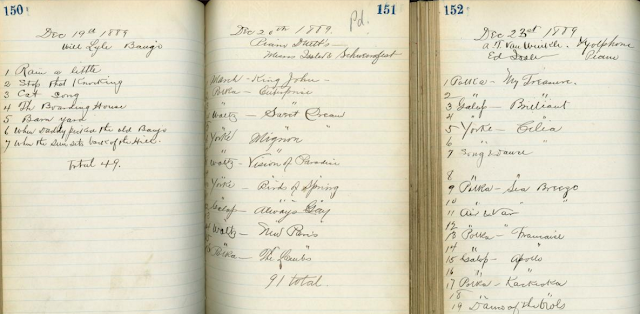 150
Dec 19th 1889
Will Lyle Banjo
1 Rain a little
2 Stop that Knocking
3 Cat Song
4 The Boarding House
5 Barn yard
6 When Daddy the old Banjo
7 When the sun sets back of the Hill.
Total 49.
151
Pd.
Dec 20th 1889.
Piano Duetts
Issler & Schweinfest
March - King John -
Polka -
Waltz -
Yorke Mignon
Waltz - Vision of Paradise
Yorke - Bird of Spring
Galop - Always Gay
Waltz - New Paris
Polka - The
91 total.
152
Dec 23rd 1889
A. T. Van Winkle. Xylophone
Ed Issler Piano
1 Polka - My Treasure.
2 " "
3 Galop - Brilliant
4 " "
5 Yorke - Celia
6 " "
7 Song & Dance
8 "
9 Polka - Sea Breeze
10 " "
11 Air & Var
12 "
13 Polka -
14 " "
15 Galop - Apollo
16 " "
17 Polka -
18 "
19 Dance of the